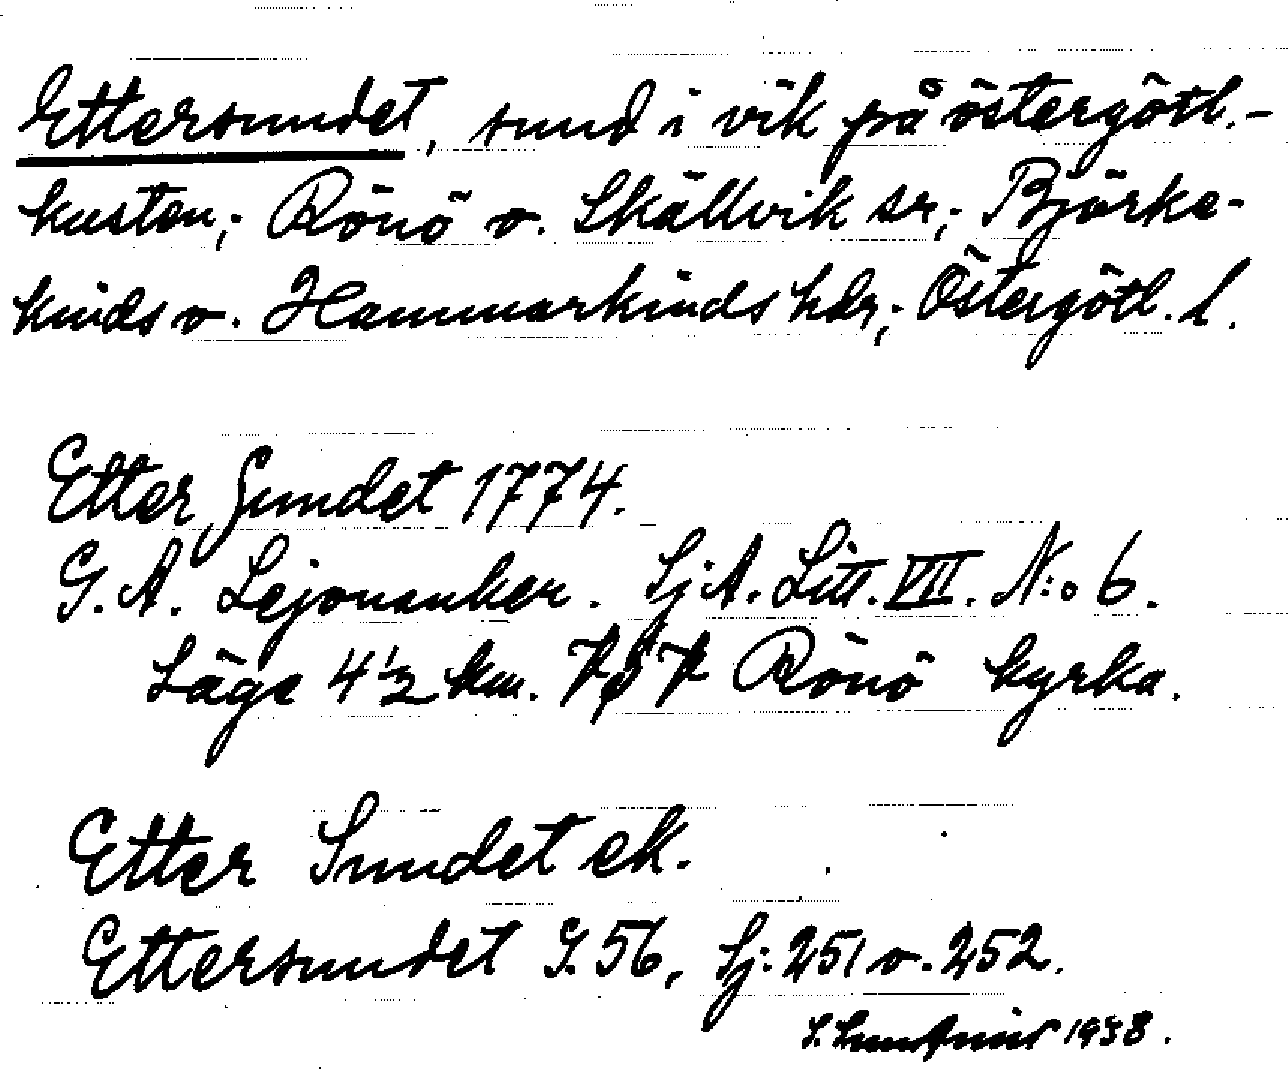 Ettersundet, sund i vik på östergötl.-
kusten; Rönö o. Skällvik sr; Björke-
kinds o. Hammarkinds hdr; Östergötl. l.
Etter Sundet 1774.
G. A. Lejonanker. Sj. A. Litt. VII. N:o 6.
Läge 4 1/2 km. Rönö kyrka.
Etter Sundet ek.
Ettersundet G. 56, Sj. 251 o. 252.
1938.